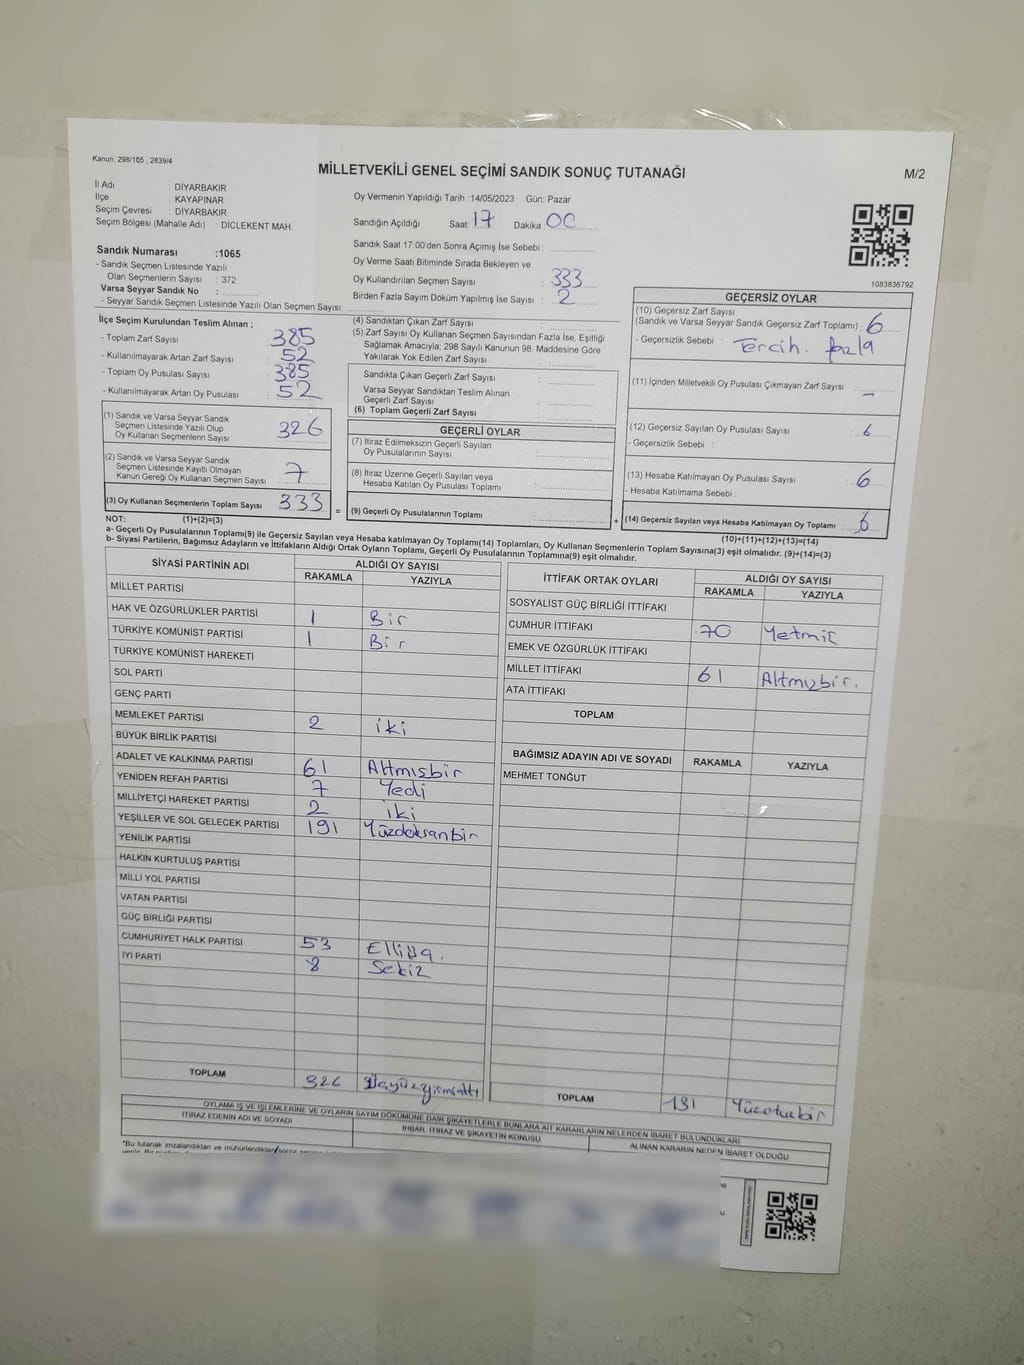 Kanun; 298/105 , 2839/4
MİLLETVEKİLİ GENEL SEÇİMİ SANDIK SONUÇ TUTANAĞI
M/2
İl Adı : DİYARBAKIR
İlçe : KAYAPINAR
Seçim Çevresi : DİYARBAKIR
Seçim Bölgesi (Mahalle Adı) : DİCLEKENT MAH.
Sandık Numarası :1065
- Sandık Seçmen Listesinde Yazılı
Olan Seçmenlerin Sayısı : 372
Varsa Seyyar Sandık No :
- Seyyar Sandık Seçmen Listesinde Yazılı Olan Seçmen Sayısı:
Oy Vermenin Yapıldığı Tarih :14/05/2023 Gün: Pazar
Sandığın Açıldığı Saat: 17 Dakika: 00
Sandık Saat 17:00'den Sonra Açımış İse Sebebi :
Oy Verme Saati Bitiminde Sırada Bekleyen ve
Oy Kullandırılan Seçmen Sayısı : 333
Birden Fazla Sayım Döküm Yapılmış İse Sayısı : 2
1083836792
İlçe Seçim Kurulundan Teslim Alınan ;
- Toplam Zarf Sayısı : 385
- Kullanılmayarak Artan Zarf Sayısı : 52
- Toplam Oy Pusulası Sayısı : 385
- Kullanılmayarak Artan Oy Pusulası : 52
(1) Sandık ve Varsa Seyyar Sandık
Seçmen Listesinde Yazılı Olup
Oy Kullanan Seçmenlerin Sayısı : 326
(2) Sandık ve Varsa Seyyar Sandık
Seçmen Listesinde Kayıtlı Olmayan
Kanun Gereği Oy Kullanan Seçmen Sayısı : 7
(3) Oy Kullanan Seçmenlerin Toplam Sayısı : 333
(1)+(2)=(3)
(4) Sandıktan Çıkan Zarf Sayısı :
(5) Zarf Sayısı Oy Kullanan Seçmen Sayısından Fazla İse, Eşitliği
Sağlamak Amacıyla; 298 Sayılı Kanunun 98. Maddesine Göre
Yakılarak Yok Edilen Zarf Sayısı :
Sandıkta Çıkan Geçerli Zarf Sayısı :
Varsa Seyyar Sandıktan Teslim Alınan
Geçerli Zarf Sayısı :
(6) Toplam Geçerli Zarf Sayısı :
=
GEÇERLİ OYLAR
(7) İtiraz Edilmeksizin Geçerli Sayılan
Oy Pusulalarının Sayısı :
(8) İtiraz Üzerine Geçerli Sayılan veya
Hesaba Katılan Oy Pusulası Toplamı :
(9) Geçerli Oy Pusulalarının Toplamı :
+
GEÇERSİZ OYLAR
(10) Geçersiz Zarf Sayısı
(Sandık ve Varsa Seyyar Sandık Geçersiz Zarf Toplamı) : 6
- Geçersizlik Sebebi : Tercih. fazla
(11) İçinden Milletvekili Oy Pusulası Çıkmayan Zarf Sayısı : -
(12) Geçersiz Sayılan Oy Pusulası Sayısı : 6
- Geçersizlik Sebebi :
(13) Hesaba Katılmayan Oy Pusulası Sayısı : 6
- Hesaba Katılmama Sebebi :
(14) Geçersiz Sayılan veya Hesaba Katılmayan Oy Toplamı : 6
(10)+(11)+(12)+(13)=(14)
NOT:
a- Geçerli Oy Pusulalarının Toplamı(9) ile Geçersiz Sayılan veya Hesaba Katılmayan Oy Toplamı(14) Toplamları, Oy Kullanan Seçmenlerin Toplam Sayısına(3) eşit olmalıdır. (9)+(14)=(3)
b- Siyasi Partilerin, Bağımsız Adayların ve İttifakların Aldığı Ortak Oyların Toplamı, Geçerli Oy Pusulalarının Toplamına(9) eşit olmalıdır.
SİYASİ PARTİNİN ADI ALDIĞI OY SAYISI
RAKAMLA YAZIYLA
MİLLET PARTİSİ
HAK VE ÖZGÜRLÜKLER PARTİSİ 1 Bir
TÜRKİYE KOMÜNİST PARTİSİ 1 Bir
TÜRKİYE KOMÜNİST HAREKETİ
SOL PARTİ
GENÇ PARTİ
MEMLEKET PARTİSİ 2 iki
BÜYÜK BİRLİK PARTİSİ
ADALET VE KALKINMA PARTİSİ 61 Altmışbir
YENİDEN REFAH PARTİSİ 7 Yedi
MİLLİYETÇİ HAREKET PARTİSİ 2 iki
YEŞİLLER VE SOL GELECEK PARTİSİ 191 Yüzdoksanbir
YENİLİK PARTİSİ
HALKIN KURTULUŞ PARTİSİ
MİLLİ YOL PARTİSİ
VATAN PARTİSİ
GÜÇ BİRLİĞİ PARTİSİ
CUMHURİYET HALK PARTİSİ 53
İYİ PARTİ 8 Sekiz
TOPLAM 326
İTTİFAK ORTAK OYLARI ALDIĞI OY SAYISI
RAKAMLA YAZIYLA
SOSYALİST GÜÇ BİRLİĞİ İTTİFAKI
CUMHUR İTTİFAKI 70 Yetmiş
EMEK VE ÖZGÜRLÜK İTTİFAKI
MİLLET İTTİFAKI 61 Altmışbir.
ATA İTTİFAKI
TOPLAM
BAĞIMSIZ ADAYIN ADI VE SOYADI RAKAMLA YAZIYLA
MEHMET TONĞUT
TOPLAM 131 Yüzotuzbir
OYLAMA İŞ VE İŞLEMLERİNE VE OYLARIN SAYIM DÖKÜMÜNE DAİR ŞİKAYETLERLE BUNLARA AİT KARARLARIN NELERDEN İBARET BULUNDUKLARI
İTİRAZ EDENİN ADI VE SOYADI
İHBAR, İTİRAZ VE ŞİKAYETİN KONUSU
ALINAN KARARIN NEDEN İBARET OLDUĞU
"Bu tutanak imzalandıktan ve mühürlendikten sonra